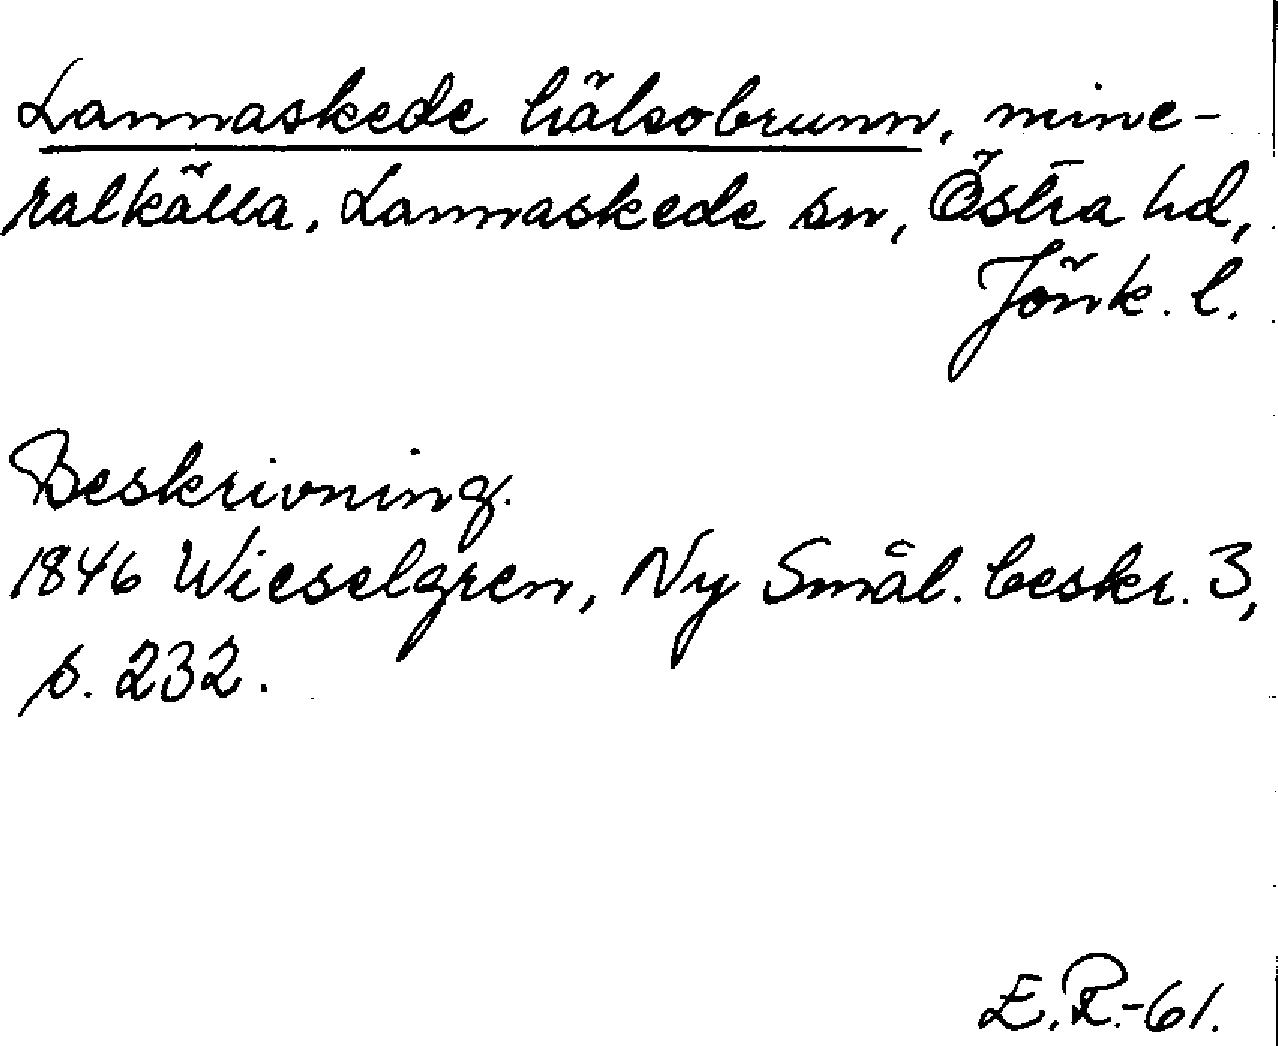 Lannaskede hälsobrunn, mine-
ralkälla, Lannaskede sn, Östra hd,
Jönk. l.
Beskrivning.
1846 Wieselgren, Ny Smål. beskr. 3,
s. 232.
E.R.-61.